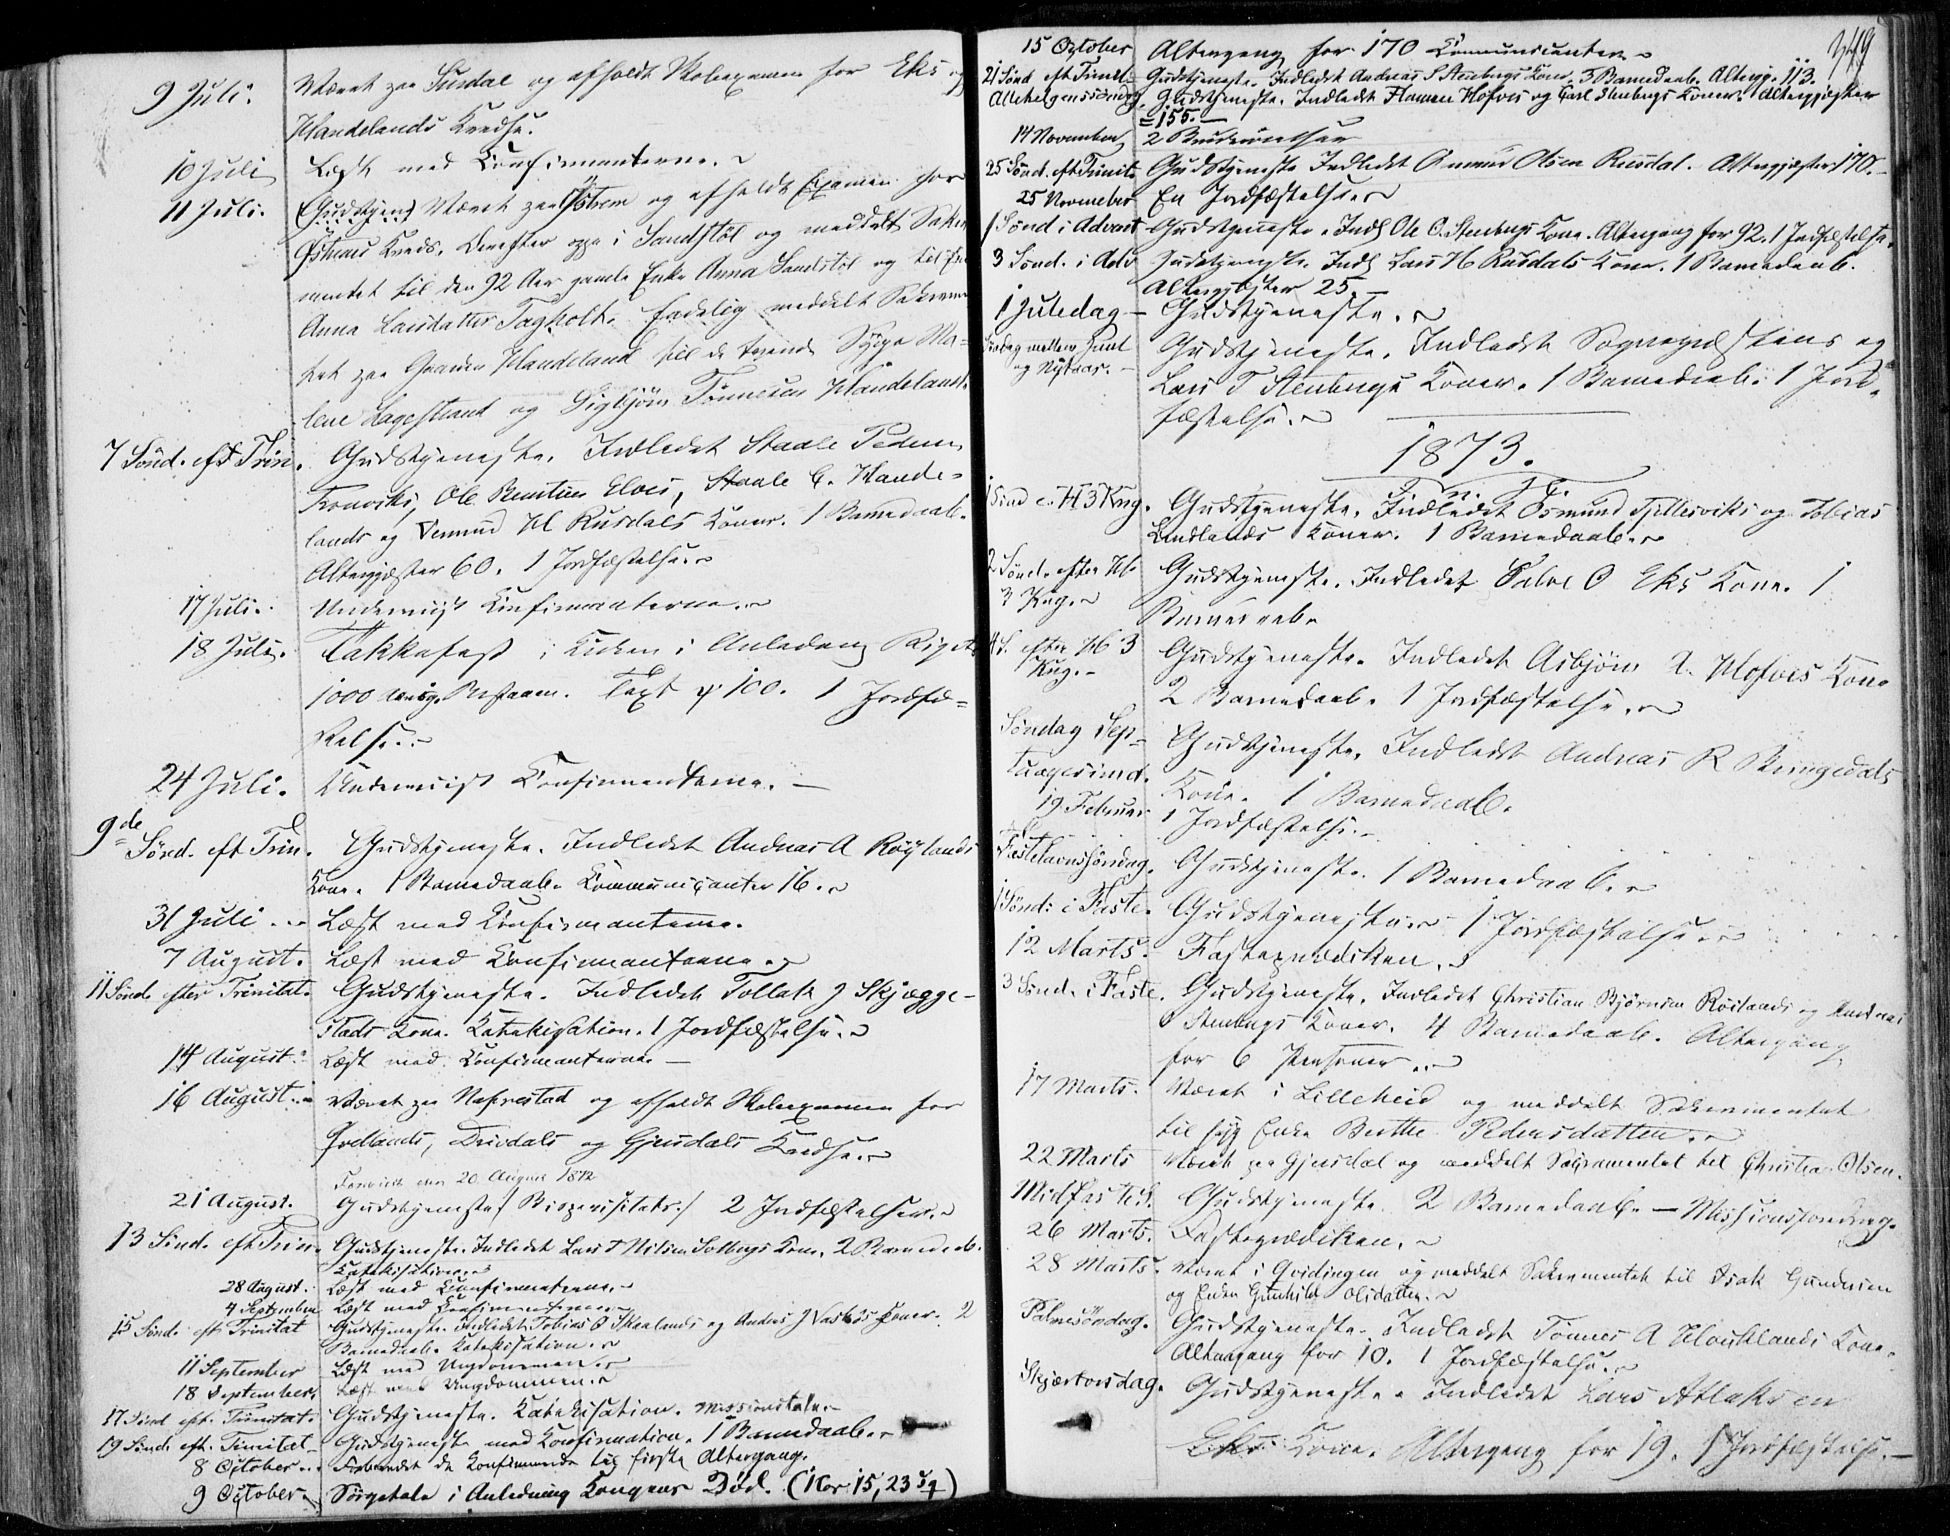 9 Juli. Været paa Sirdal og afholdt Skoleexamen for Eks og
Handelands Kredse.
10 Juli Læst med Konfirmanterne.
11 Juli. (Gudstjen) Været paa Østrem og afholdt Examen for
Østrems Kreds. Derefter oppe i Sandstöl og meddelt Sakra
mentet til den 92 Aar gamle Enke Anna Sandstöl og til
Anna Larsdatter Fagholt. Endelig meddelt Sakramen
tet paa Gaarden Handeland til de tvende Syge Ma-
lene Lagestrand og Sigbjörn Tönnesen Handeland.
7 Sönd. eft Trin. Gudstjeneste. Indledet Staale Peders.
Tronviks, Ole Berntsen Elves, Staale C. Hande-
lands og Vemund H Rusdals Koner. 1 Barnedaab.
Altergjæster 60. 1 Jordfæstelse.
17 Juli. Underviist Konfirmanterne.
18 Juli. Takkefest i Kirken i Anledning Rigets
1000 aarige Bestaaen. Text ψ 100. 1 Jordfæ-
stelse.
24 Juli. Underviist Konfirmanterne. —
9de Sönd. eft Trin. Gudstjeneste. Indledet Andreas A Röylands
Kone. 1 Barnedaab. Kommunicanter 16.
31 Juli Læst med Konfirmanterne.
7 August. Læst med Konfirmanterne.
11 Sönd. efter Trinitat. Gudstjeneste. Indledet Tollak J Skjægge-
stads Kone. Katekisation. 1 Jordfæstelse.
14 August. Læst med Konfirmanterne. —
16 August. Været paa Nefrestad og afholdt Skoleexamen for
Ovedlands, Drivdals og Gjersdals Kredse.
Foreviist den 20 August 1872
21 August. Gudstjeneste / Bispevisitats./ 2 Jordfæstelser.
13 Sönd. eft Trin. Gudstjeneste. Indledet Lars T Nilsen Solbergs Kone. 2 Barnedaab.
Katekisation.
28 August. Læst med Konfirmanterne.
4 September Læst med Konfirmanterne.
15 Sönd. eft Trinitat Gudstjeneste. Indledet Tobias O Skaalands og Anders J Vaskos Koner. 2
Barnedaab. Katekisation.
11 September Læst med Ungdommen.
18 September. Læst med Ungdommen.
17 Sönd eft. Trinitat. Gudstjeneste. Katekisation. Missionstale.
19 Sönd. eft. Trinitat Gudstjeneste med Konfirmation. 1 Barnedaab.
8 October Forberedt de Konfirmerede til første Altergang.
9 October Sörgetale i Anledning Kongens Död. (1 Kor. 15, 23 sq)
349
15 October Altergang for 170 Kommunicanter.
21 Sönd eft Trinit. Gudstjeneste. Indledet Andreas S Stenbergs Kone. 3 Barnedaab. Altergj. 113.
Allehelgenssöndag. Gudstjeneste. Indledet Flamen Hofves og Carl Stenbergs Koner. Altergjæster
= 155. —
14 November 2 Brudevielser
25 Sönd. eft Trinit. Gudstjeneste Indledet Omund Olsen Rusdal. Altergjæster 170.
25 November En Jordfæstelse.
1 Sönd i Advent Gudstjeneste. Indl Ole C. Stenbergs Kone. Altergang for 92. 1 Jordfæstelse.
3 Sönd. i Adv Gudstjeneste. Indl Lars H Rusdals Kone. 1 Barnedaab.
Altergjæster 25. —
1 Juledag — Gudstjeneste.
Söndag mellem Juul Gudstjeneste. Indledet Sognepræstens og
og Nytaar. — Lars T Stenbergs Koner. 1 Barnedaab. 1 Jord-
fæstelse.
1873.
1 Sönd e. H 3 Kng. Gudstjeneste. Indledet Osmund Fjellesviks og Tobias
Lindlands Koner. 1 Barnedaab.
2 Sönd. efter H. Gudstjeneste. Indledet Salve O Eks Kone. 1
3 Kng. Barnedaab.
4 S. efter H 3 Gudstjeneste. Indledet Asbjörn A. Hofves Kone
Kng. 2 Barnedaab. 1 Jordfæstelse.
Söndag Sep- Gudstjeneste. Indledet Andreas R Bringedals
tuagesima. Kone. 1 Barnedaab.
19 Februar 1 Jordfæstelse.
Fastelavnssöndag. Gudstjeneste. 1 Barnedaab.
1 Sönd: i Faste. Gudstjeneste. 1 Jordfæstelse.
12 Marts. Fasteprædiken.
3 Sönd. i Faste. Gudstjeneste. Indledet Christian Björnsen Röilands og Andreas
Stenbergs Koner. 4 Barnedaab. Altergang
for 6 Personer.
17 Marts. Været i Lilleheid og meddelt Sakramentet
til syg Enke Berthe Pedersdatter.
22 Marts Været paa Gjersdal og meddelt Sacramentet til Christian Olsen.
Midfaste S. Gudstjeneste 2 Barnedaab. — Missionsforedrag.
26 Marts. Fasteprædiken.
28 Marts. Været i Qvidingen og meddelt Sakramentet til Isak Gundersen
og Enken Gunhild Olsdatter.
Palmesöndag. Gudstjeneste. Indledet Tönnes A Houklands Kone.
Altergang for 10. 1 Jordfæstelse.
Skjærtorsdag. Gudstjeneste. Indledet Lars Atlaksen
Eks Kone. Altergang for 19. 1 Jordfæstelse. —